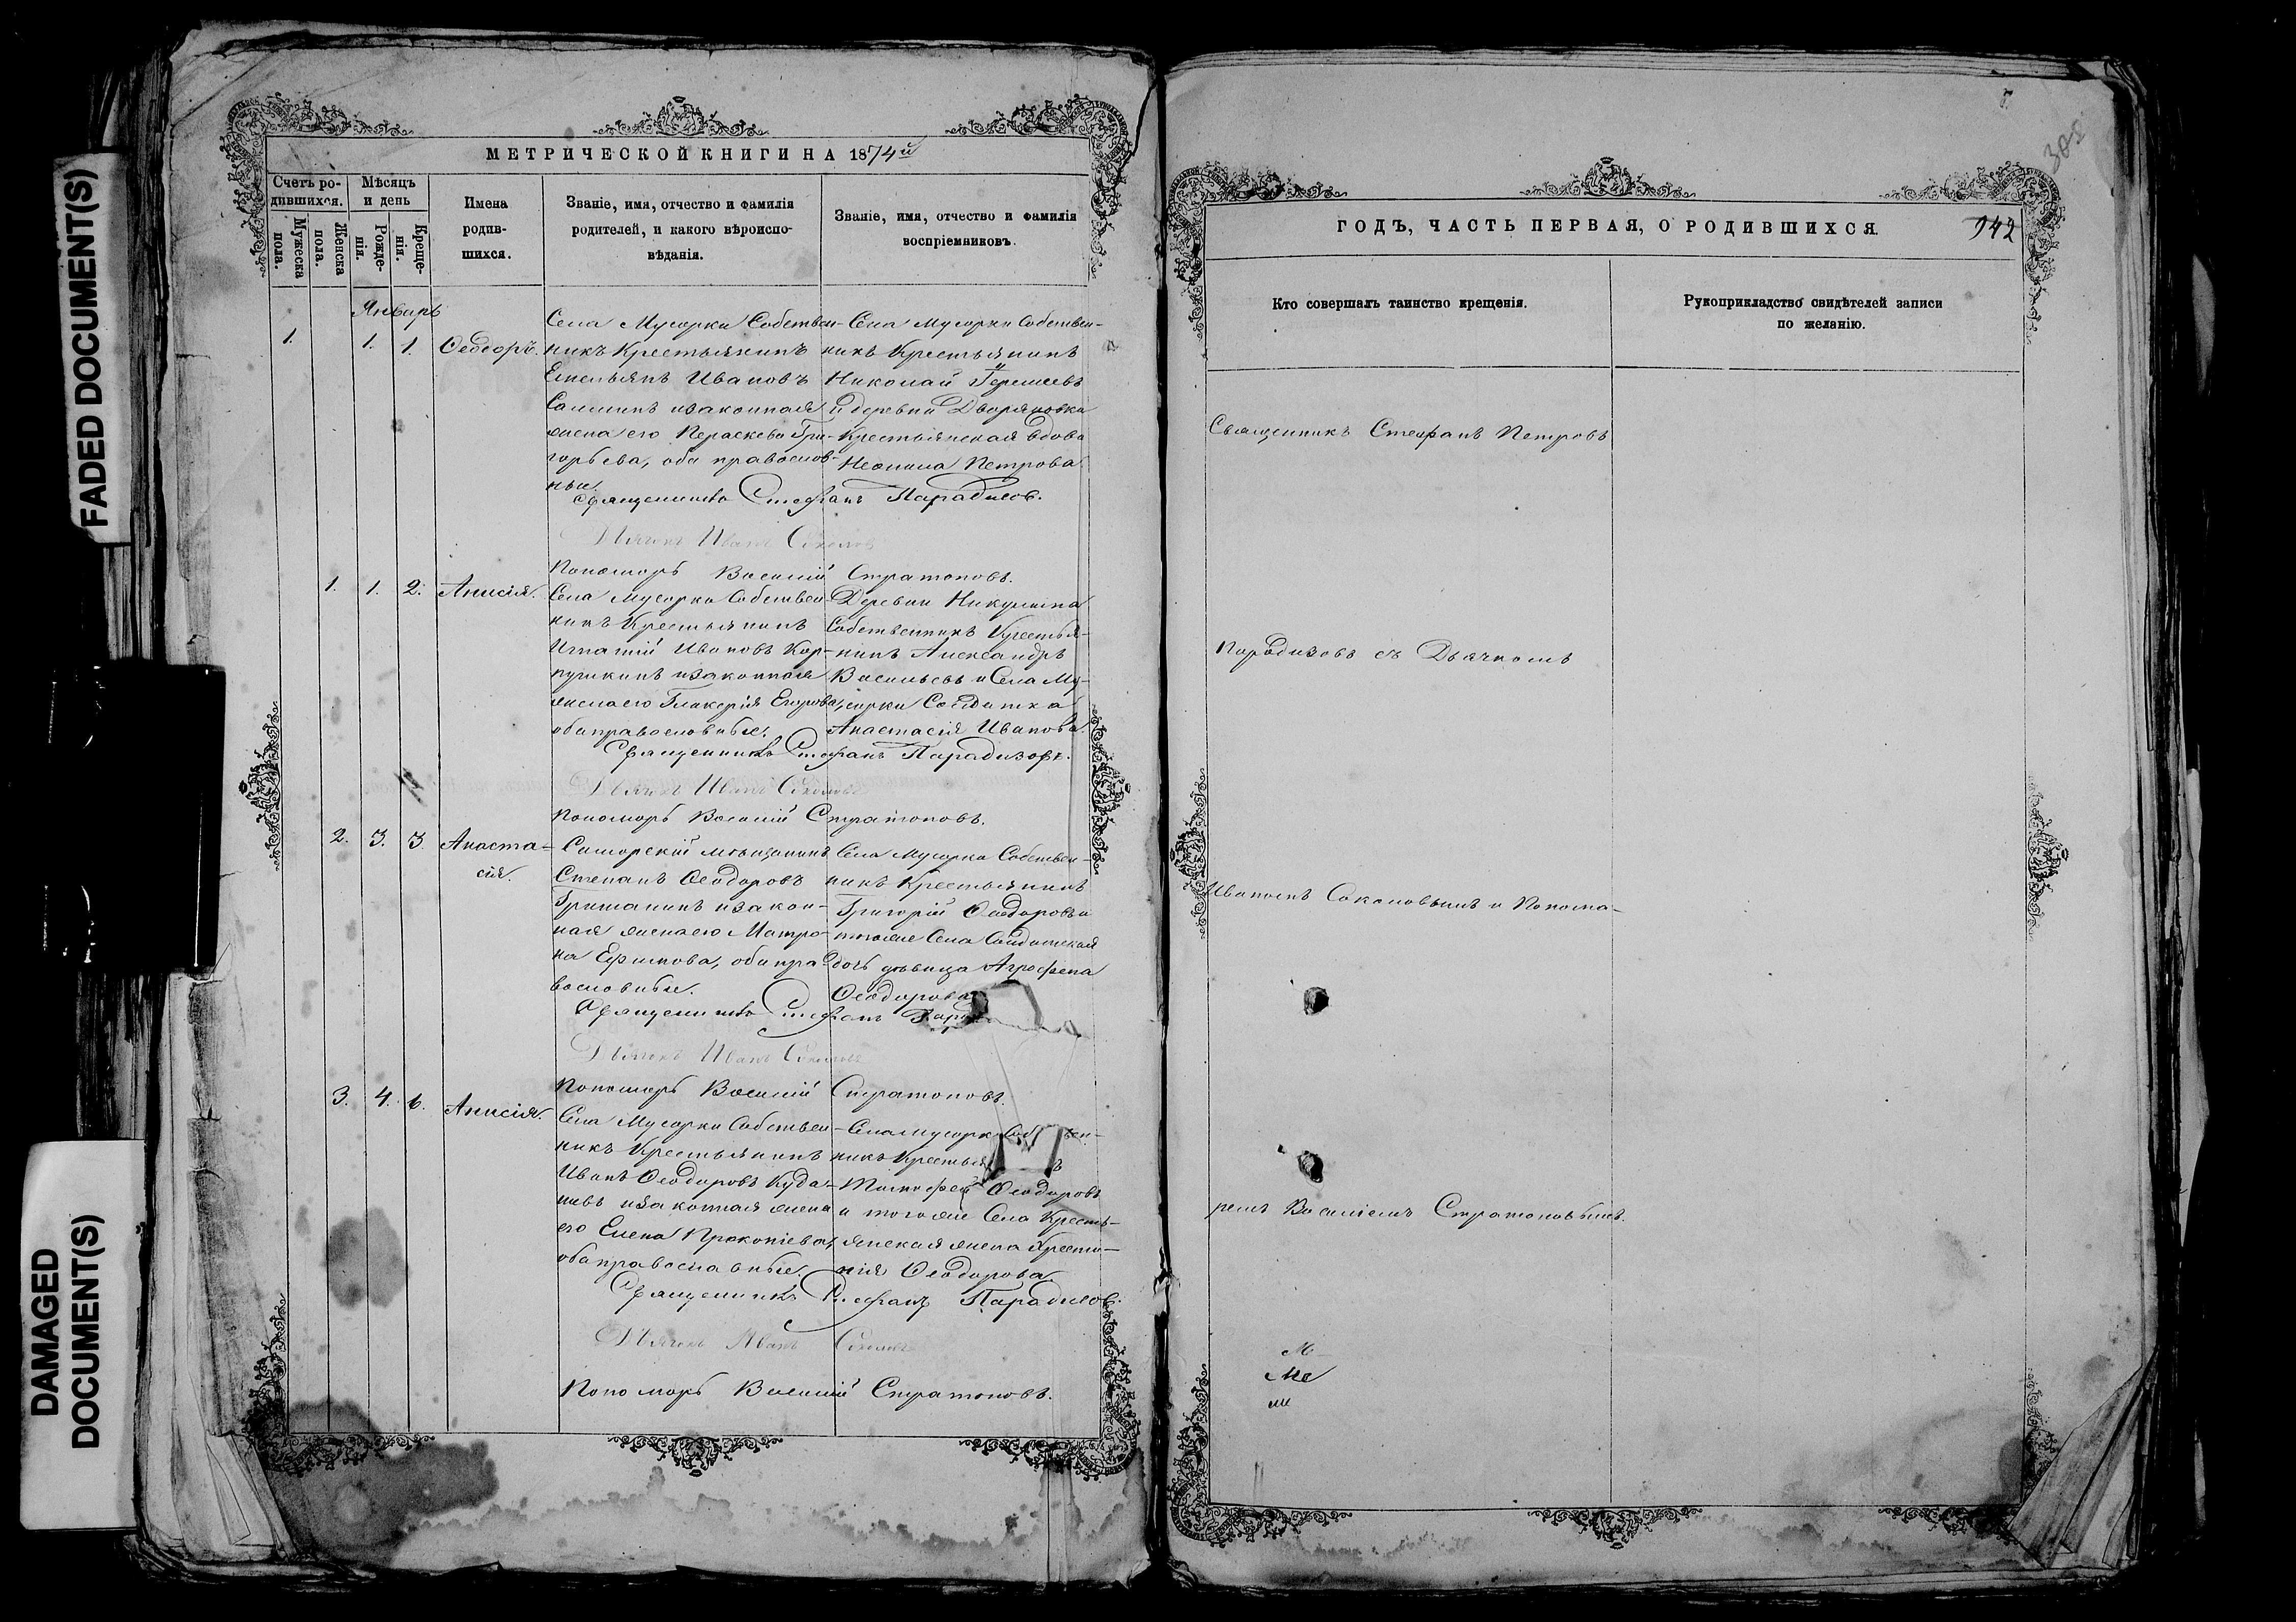 FADED DOCUMENT(S)
DAMAGED
DOCUMENT(S)
МЕТРИЧЕСКОЙ КНИГИ НА 1874й
Счетъ ро-
дившихся.
Мужеска
пола.
Женска
пола.
Мѣсяцъ
и день
Рожде-
нія.
Креще-
нія.
Имена
родив-
шихся.
Званіе, имя, отчество и фамилія
родителей, и какого вѣроиспо-
вѣданія.
Званіе, имя, отчество и фамилія
воспріемниковъ.
Январь
1. 1. 1. Ѳеодоръ.
Села Мусорки Собствен-
никъ Крестьянинъ
Емельянъ Ивановъ
изаконная
жена его Параскева Гри-
горьева, оба православ-
ные.
Села Мусорки Собствен-
никъ Крестьянинъ
Николай
и деревни Дворяновки
Крестьянская вдова
Неонила Петрова.
Священникъ Стефанъ Парадизов.
Дьячекъ Иванъ Соколовъ
Пономарь Василій Стратоновъ.
1. 1. 2. Анисія.
Села Мусорки Собствен-
никъ Крестьянинъ
Игнатій Ивановъ Кор-
пушкинъ изаконная
жена его Гликерія Егорова,
оба православные.
Деревни Никулина
Собственникъ Крестья-
нинъ Александръ
Васильевъ и Села Му-
сорки Солдатка
Анастасія Иванова.
Священникъ Стефанъ Парадизовъ.
Дьячекъ Иванъ Соколовъ
Пономарь Василій Стратоновъ.
2. 3. 3. Анаста-
сія.
Самарскій мѣщанинъ
Степанъ Ѳеодоровъ
Гришанинъ изакон-
ная жена его Матро-
на Ефимова, оба пра-
вославные.
Села Мусорки Собствен-
никъ Крестьянинъ
Григорій Ѳеодоровъ и
тогоже Села Солдатская
дочь дѣвица Агрофена
Ѳеодорова
Священникъ Стефанъ Пара
Дьячекъ Иванъ Соколовъ
Пономарь Василій Стратоновъ.
3. 4. 6. Анисія.
Села Мусорки Собствен-
никъ Крестьянинъ
Иванъ Ѳеодоровъ Куда-
шевъ изаконная жена
его Елена Прокопіева,
оба православные.
Села Мусорки Соб вен-
никъ Крестья ъ
Тимофей Ѳеодоровъ
и тогоже Села Кресть-
янская жена
нія Ѳеодорова.
Священникъ Стефанъ Парадизов.
Дьячекъ Иванъ Соколовъ
Пономарь Василій Стратоновъ.
305
ГОДЪ, ЧАСТЬ ПЕРВАЯ, О РОДИВШИХСЯ.
942
Кто совершалъ таинство крещенія.
Рукоприкладство свидѣтелей записи
по желанію.
Священникъ Стефанъ Петровъ
Парадизовъ съ Дьячкомъ
Иваномъ Соколовымъ и Понома-
ремъ Василіемъ Стратоновымъ.
М
Ме